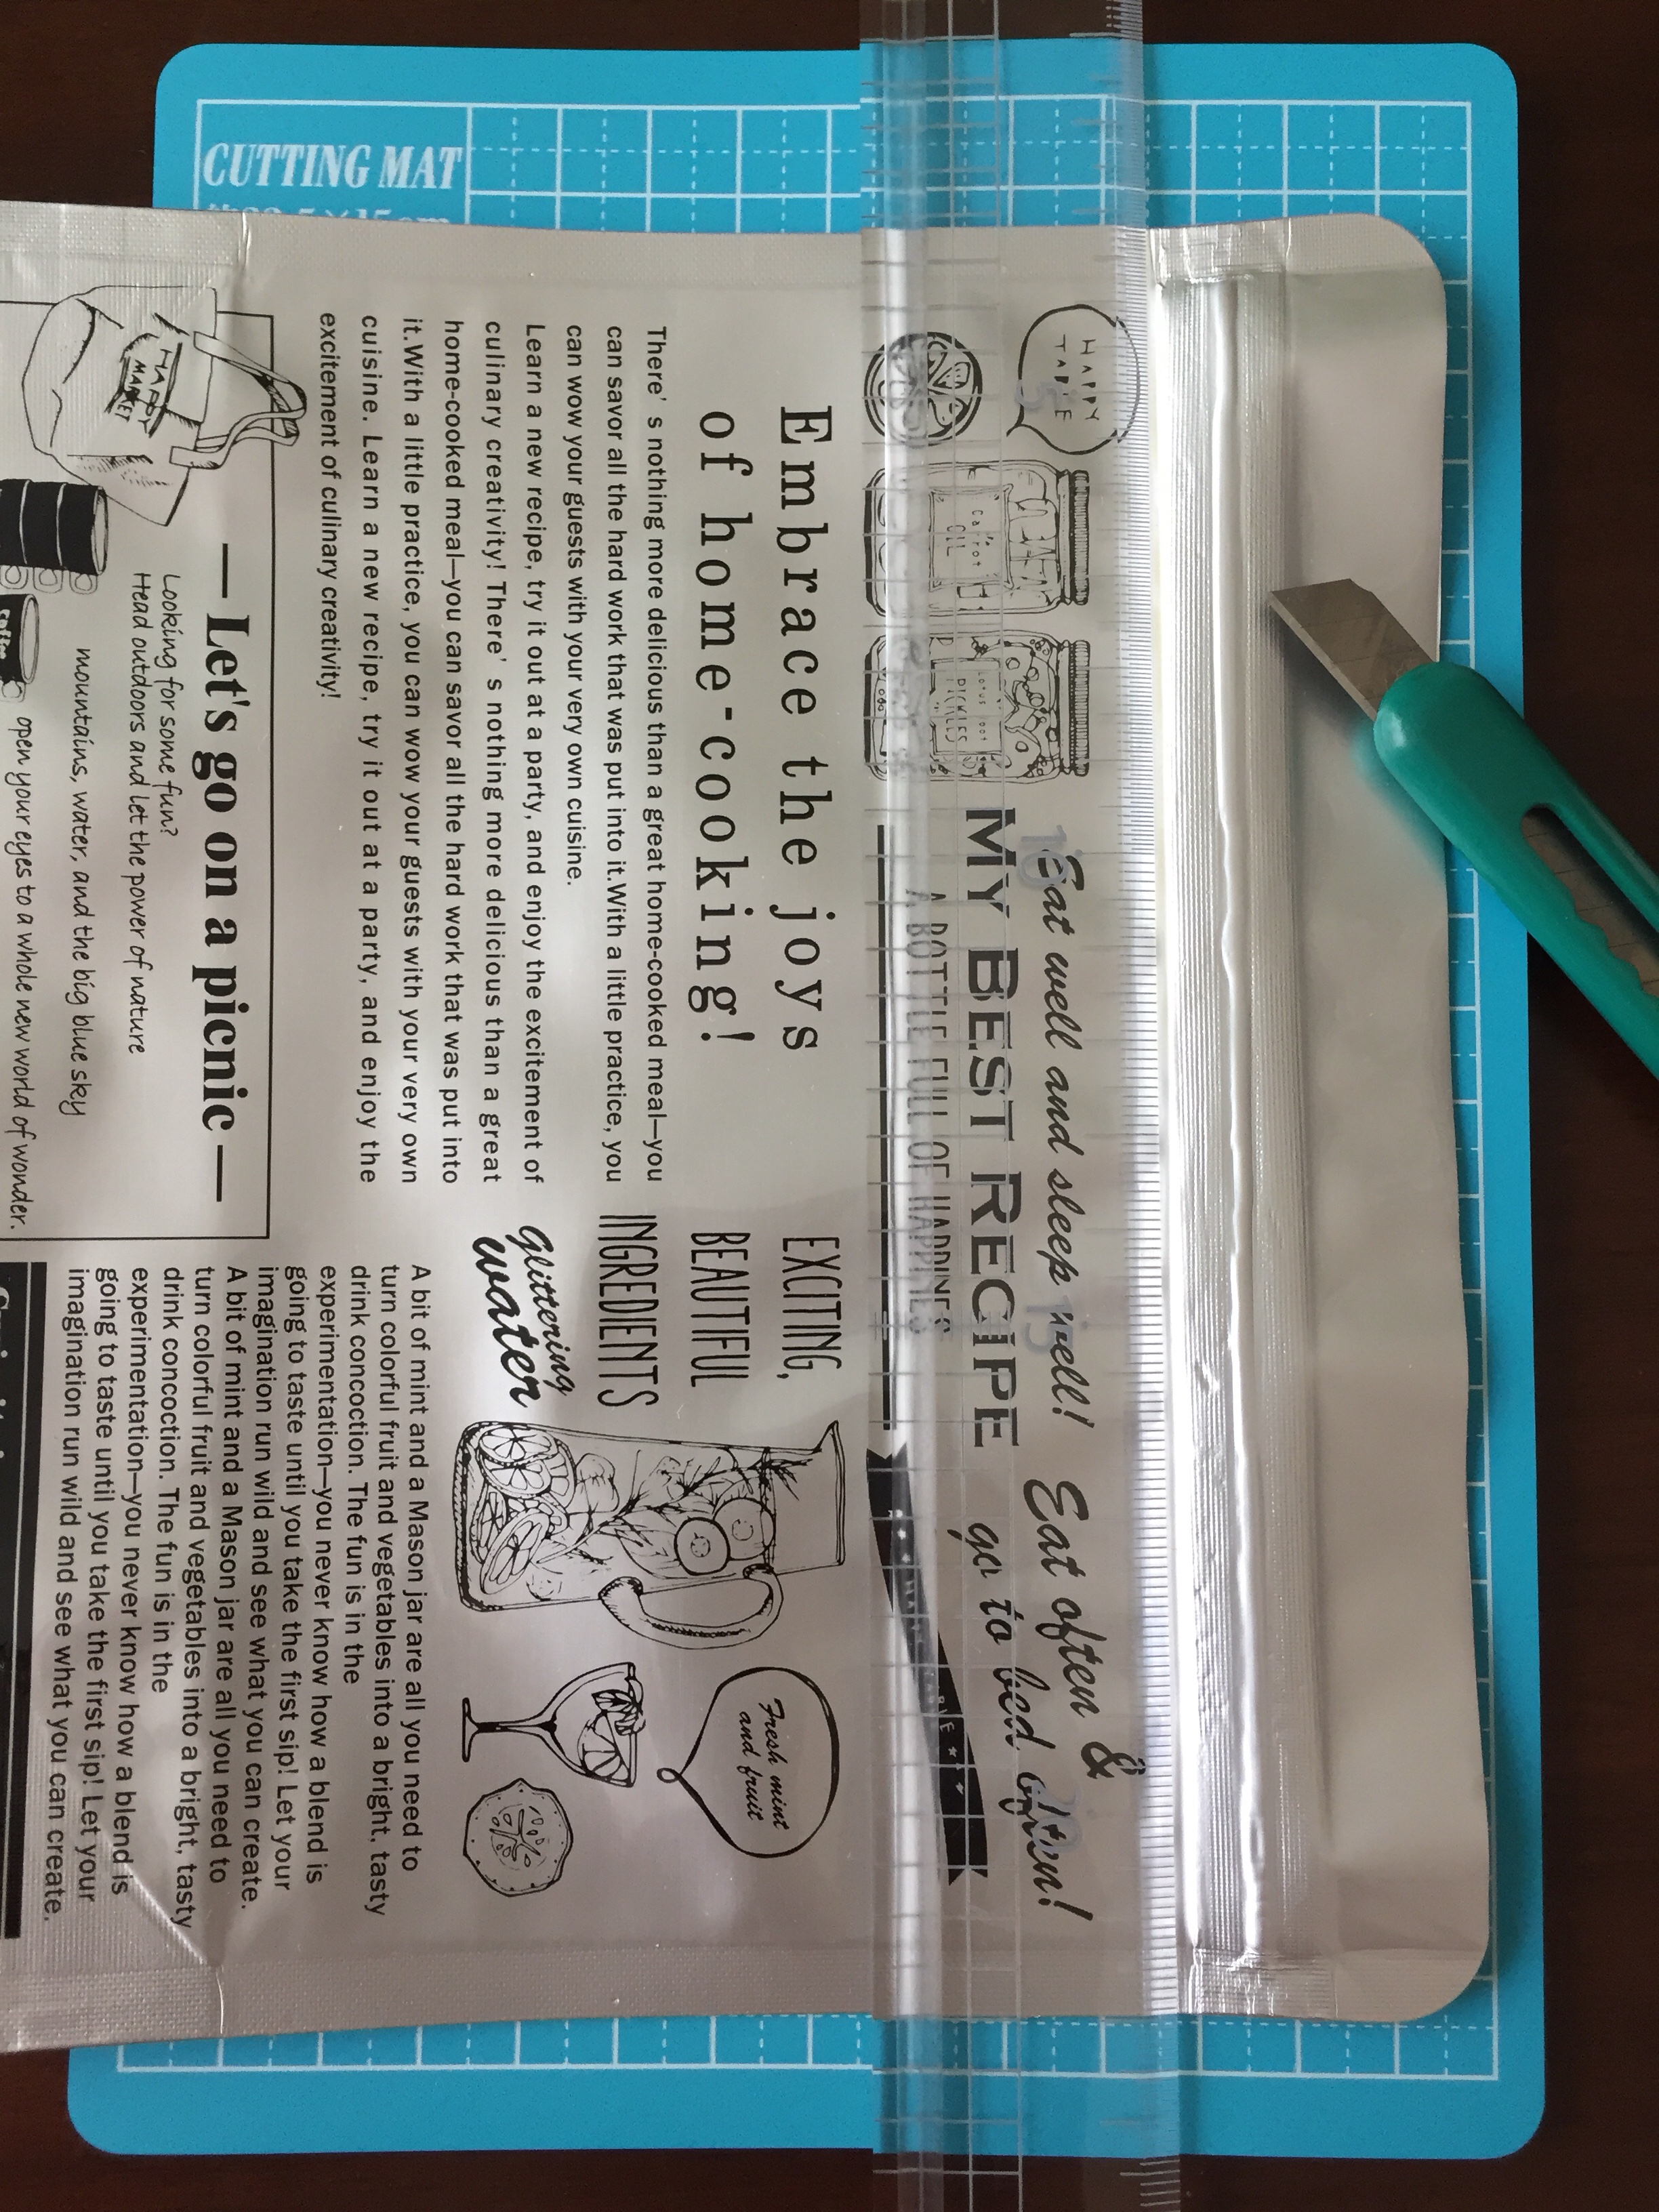 CUTTING MAT
HAPPY
TABLE
Carrot
OIL
Lotus root
PICKLES
Eat well and sleep well!
Eat often &
go to bed often!
MY BEST RECIPE
A BOTTLE FULL OF HAPPINES
5
10
15
Embrace the joys
of home-cooking!
There' s nothing more delicious than a great home-cooked meal—you
can savor all the hard work that was put into it.With a little practice, you
can wow your guests with your very own cuisine.
Learn a new recipe, try it out at a party, and enjoy the excitement of
culinary creativity! There' s nothing more delicious than a great
home-cooked meal—you can savor all the hard work that was put into
it.With a little practice, you can wow your guests with your very own
cuisine. Learn a new recipe, try it out at a party, and enjoy the
excitement of culinary creativity!
EXCITING,
BEAUTIFUL
INGREDIENTS
glittering
water
Fresh mint
and fruit
A bit of mint and a Mason jar are all you need to
turn colorful fruit and vegetables into a bright, tasty
drink concoction. The fun is in the
experimentation—you never know how a blend is
going to taste until you take the first sip! Let your
imagination run wild and see what you can create.
A bit of mint and a Mason jar are all you need to
turn colorful fruit and vegetables into a bright, tasty
drink concoction. The fun is in the
experimentation—you never know how a blend is
going to taste until you take the first sip! Let your
imagination run wild and see what you can create.
HAPPY
MARKET
— Let's go on a picnic —
Looking for some fun?
Head outdoors and let the power of nature
mountains, water, and the big blue sky
open your eyes to a whole new world of wonder.
coffee